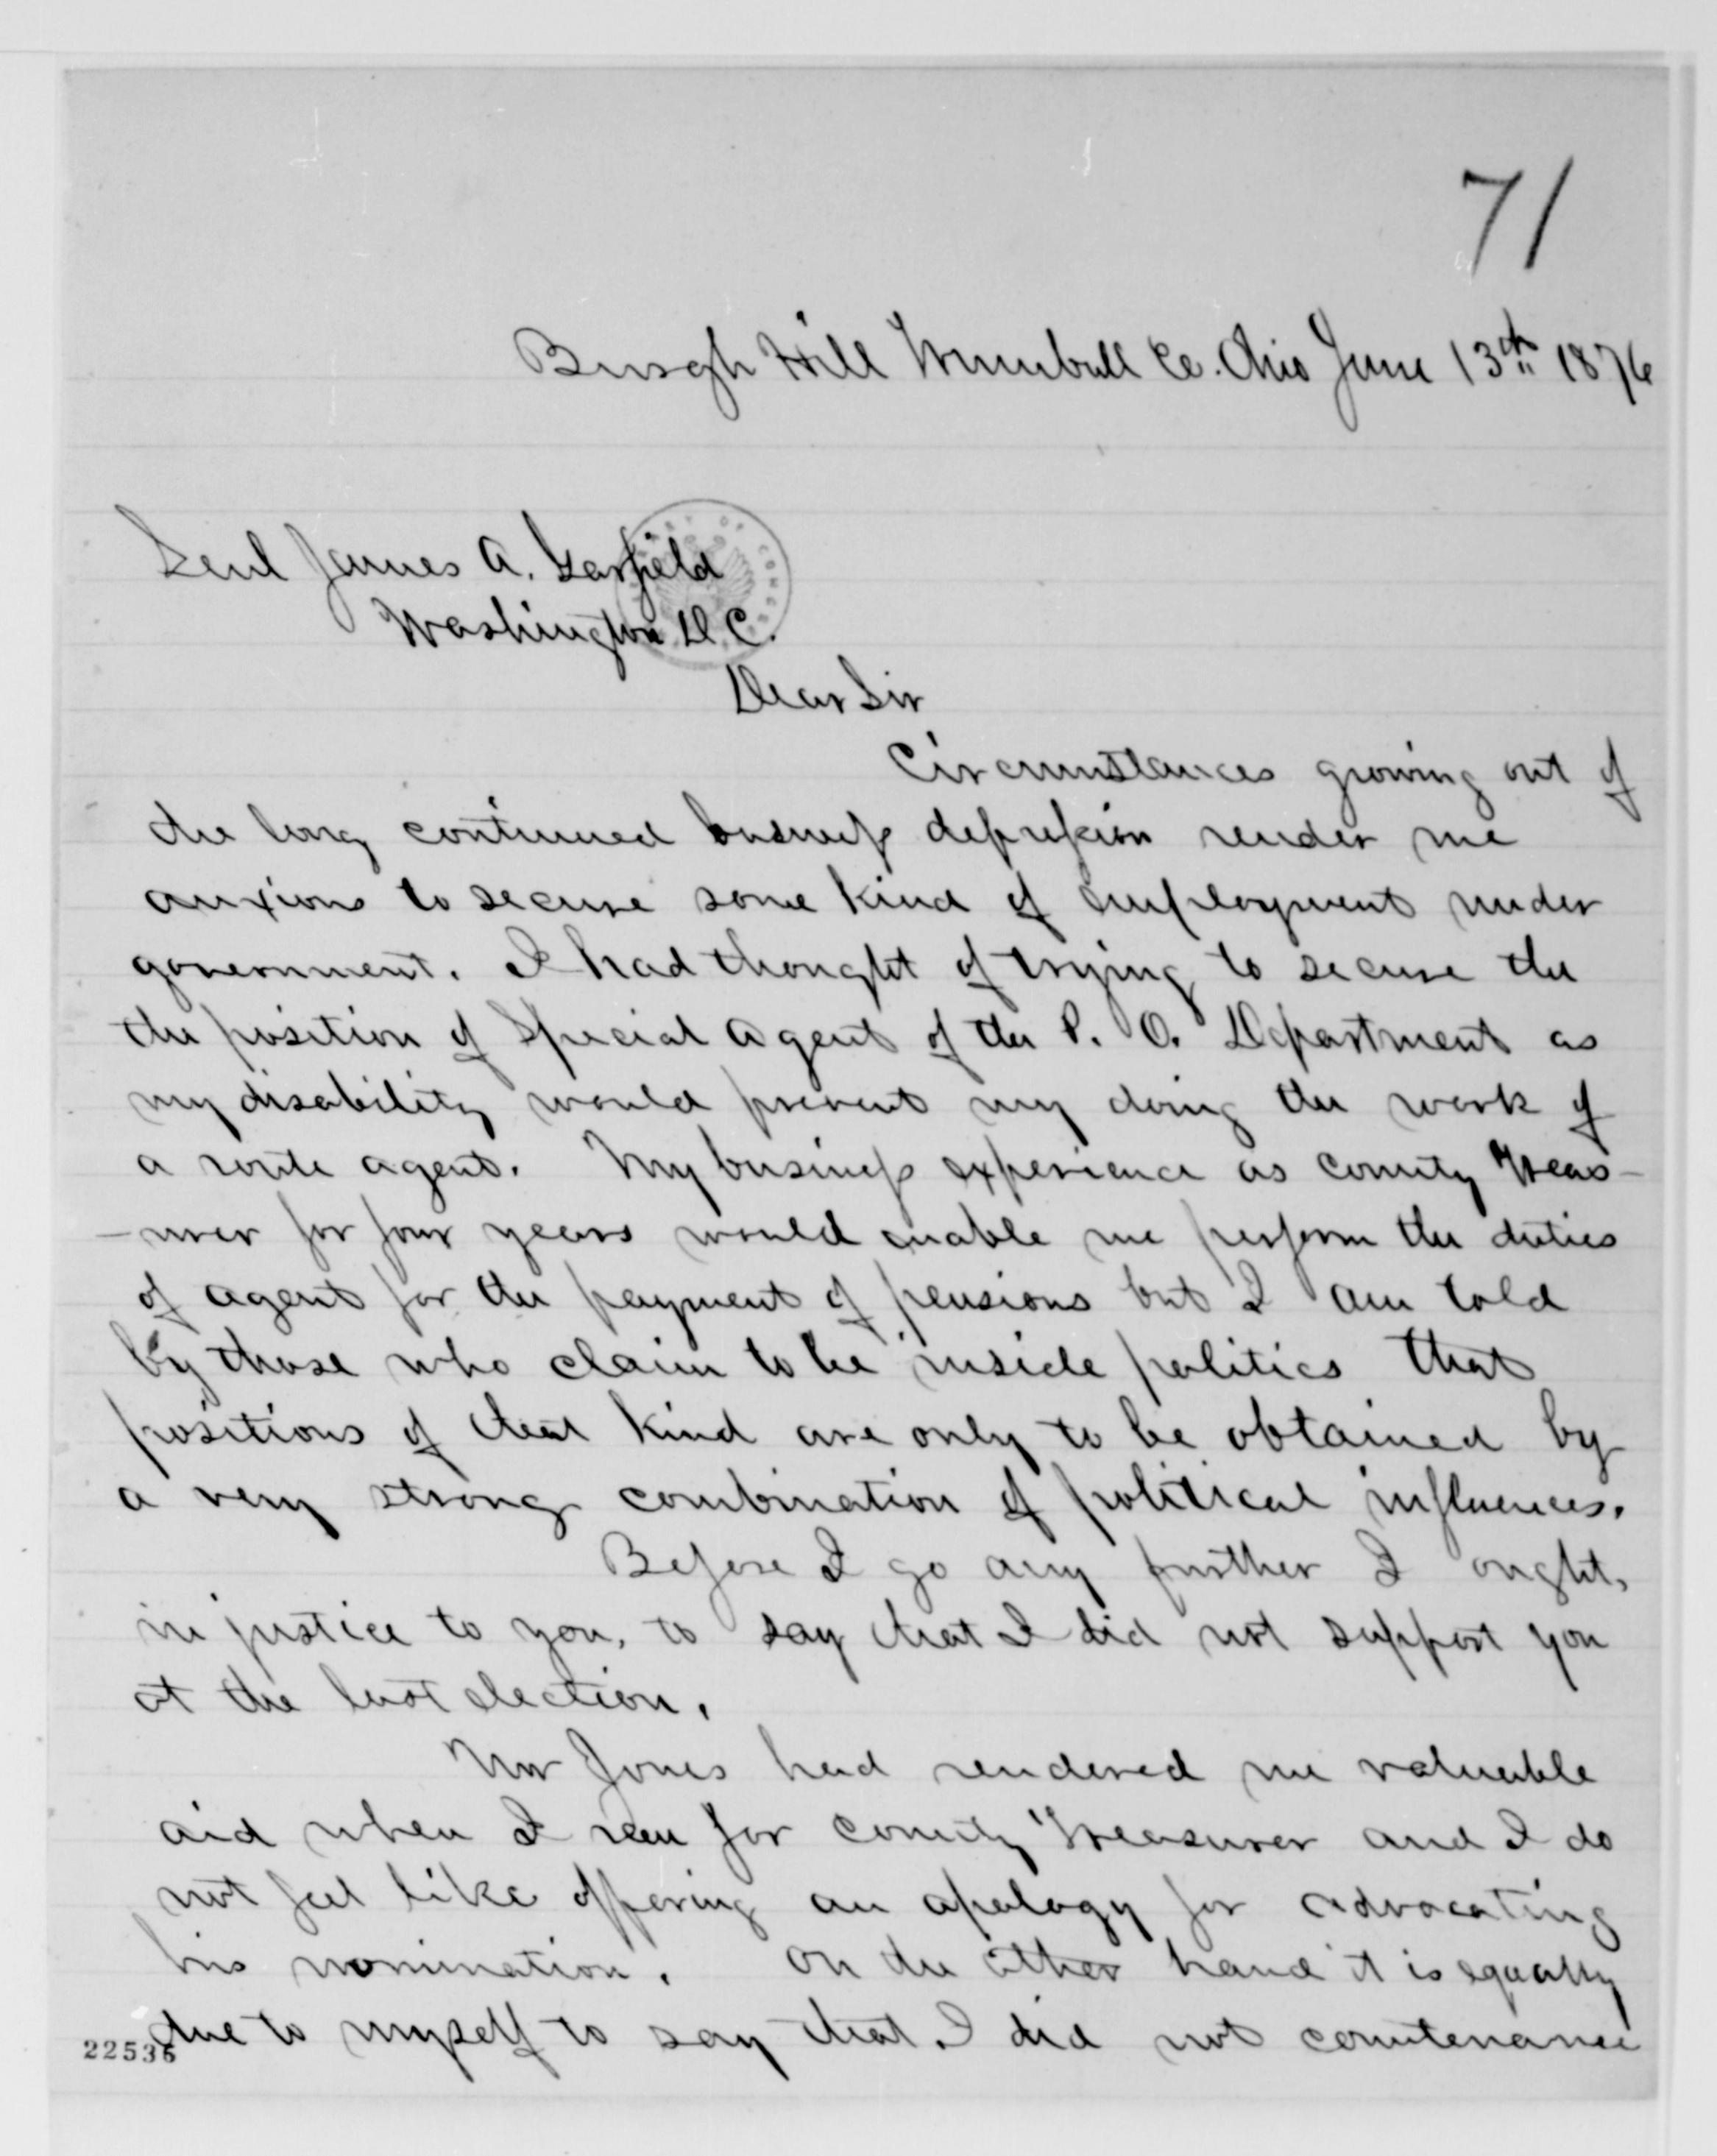 71
Burgh Hill Trumbull Co. Ohio June 13th 1876
Genl James A. Garfield
Washington D.C.
Dear Sir
Circumstances growing out of
the long continued business depression render me
anxious to secure some kind of employment under
government. I had thought of trying to secure the
the position of Special Agent of the P. O. Department as
my disability would prevent my doing the work of
a route agent. My business experience as county Treas-
-urer for four years would enable me perform the duties
of agent for the payment of pensions but I am told
by those who claim to be inside politics that
positions of that kind are only to be obtained by
a very strong combination of political influences.
Before I go any further I ought,
in justice to you, to say that I did not support you
at the last election.
Mr Jones had rendered me valuable
aid when I ran for county Treasurer and I do
not feel like offering an apology for advocating
his nomination. On the other hand it is equally
due to myself to say that I did not countenance
22536